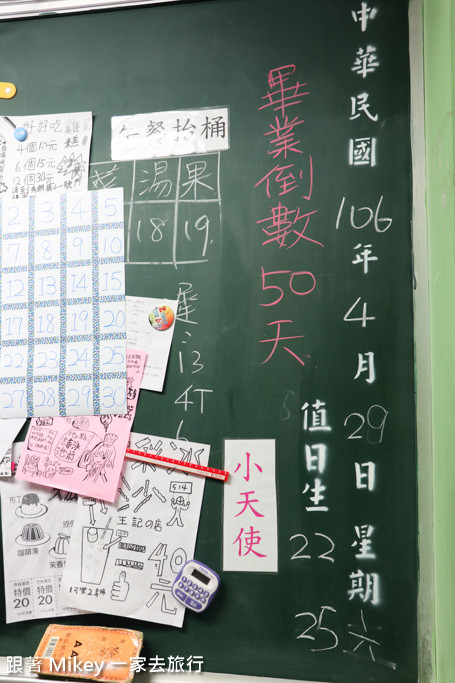 中華民國106年4月29日星期六
值日生
22
25
畢業倒數50天
午餐抬桶
菜 湯 果
18 19
小天使
好好吃
4個10元
6個15元
12個30元
2 3 4 5
7 8 9 10
12 13 14 15
17 18 19 20
22 23 24 25
27 28 29 30
王記の店
40元
514
布丁
咖啡凍
特價
20
特價
20
跟著 Mikey 一家去旅行